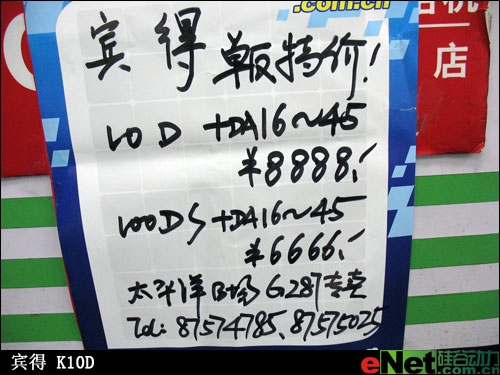 .com.cn
机
店
宾得 单反特价!
10D +DA16~45
¥8888.-
100DS +DA16~45
¥6666.-
太平洋B场G287专卖
Tel: 87574785、87575025
宾得 K10D
eNet硅谷动力
.com.cn